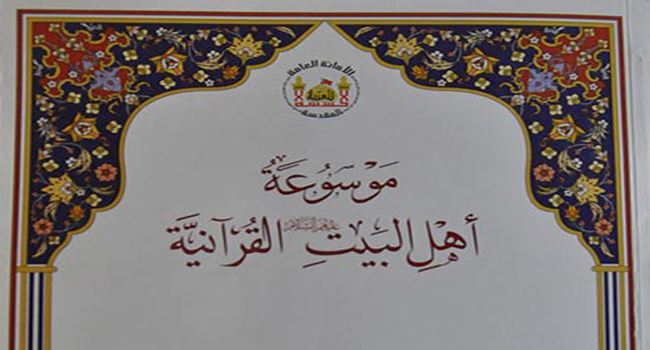 الأمانة العامة
للعتبة
المقدسة
مَوْسُوعَةُ
أَهْلِ البَيْتِ عليهم السلام القُرآنيَّة